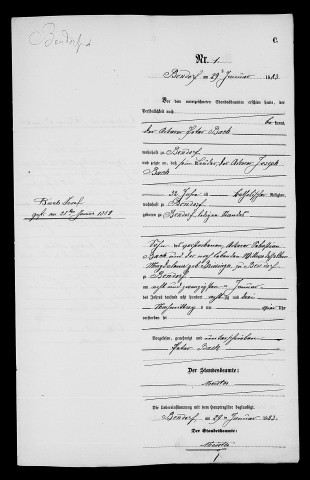 Bendorf
C.
Nr. 1
Bendorf am 29 Januar 1883.
Vor dem unterzeichneten Standesbeamten erschien heute, der
Persönlichkeit nach
be kannt,
der Ackerer Peter Back
wohnhaft zu Bendorf
und zeigte an, daß sein Bruder, der Ackerer Joseph
Back
32 Jahre alt, katholischer Religion,
wohnhaft zu Bendorf
geboren zu Bendorf, ledigen Standes
Sohn des verstorbenen Ackerer Sebastian
Back und der noch lebenden
Magdalena geb. in Bendorf
zu Bendorf
am acht und zwanzigsten Januar
des Jahres tausend acht hundert achtzig und drei
Nachmittags um vier Uhr
verstorben sei
Vorgelesen, genehmigt und unterschrieben
Peter Back
Der Standesbeamte:
Die Uebereinstimmung mit dem Hauptregister beglaubigt.
Bendorf am 29 Januar 1883.
Der Standesbeamte:
Back Josef
1